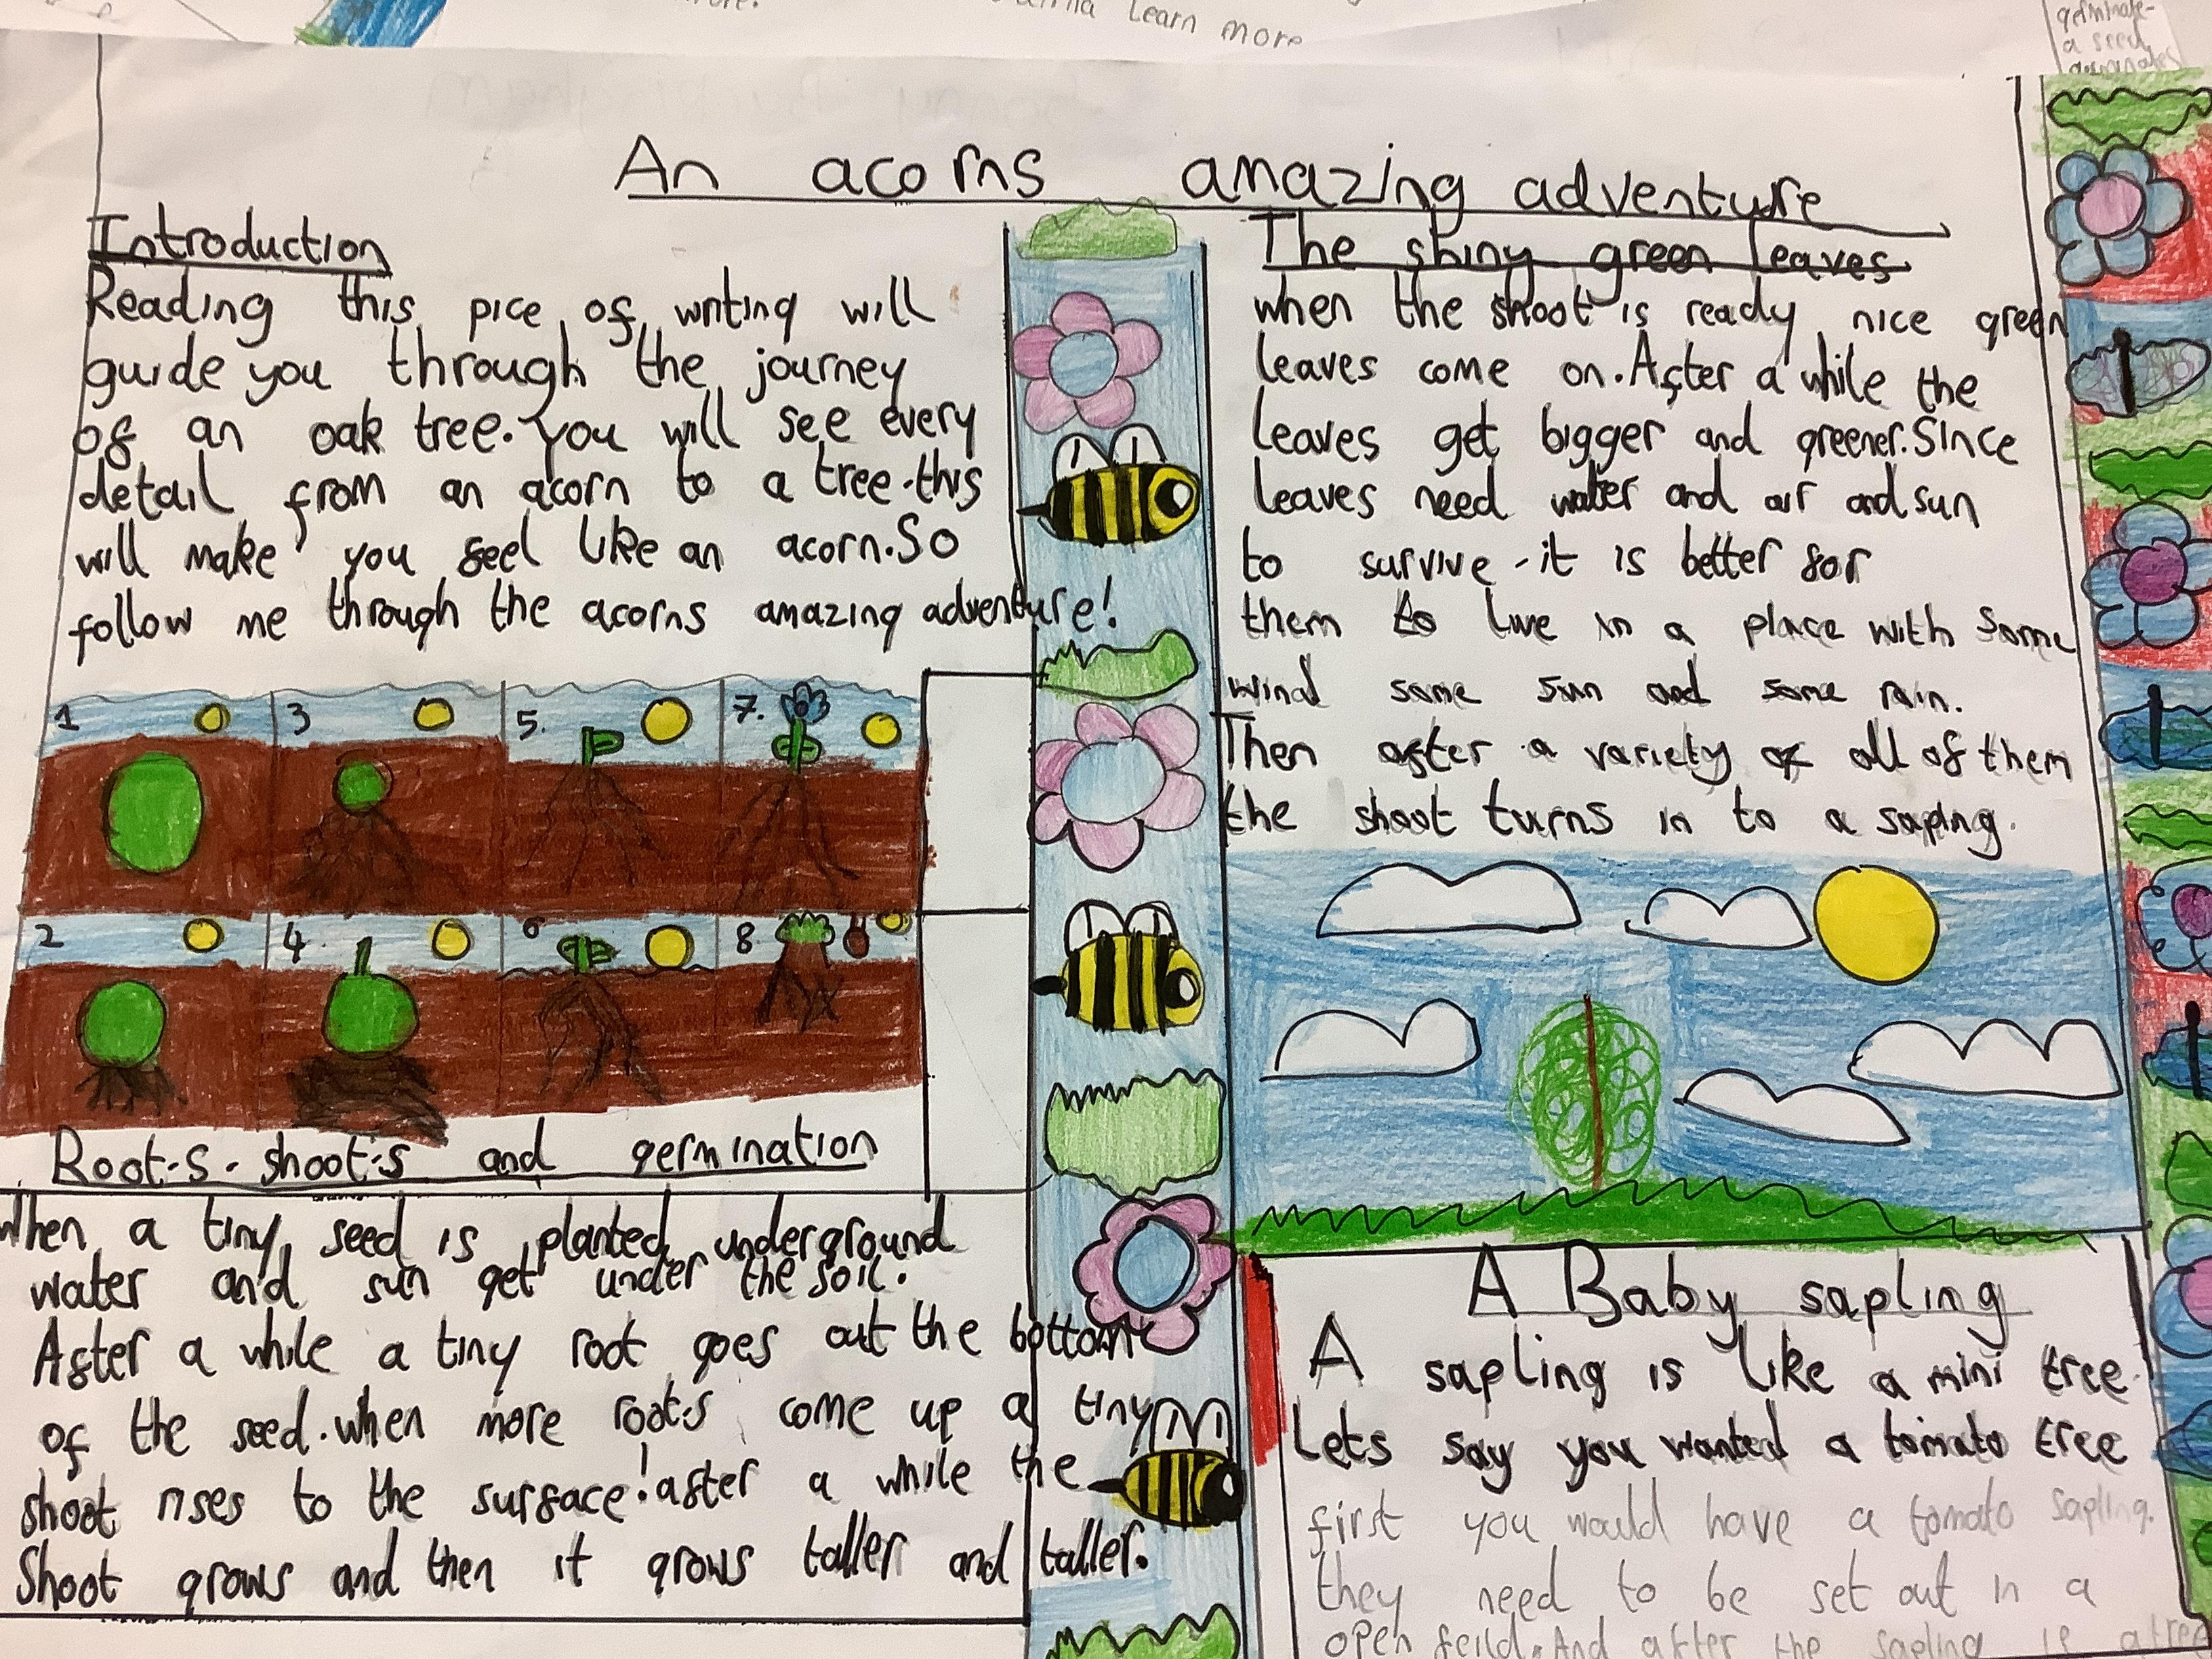 Learn more
germinate-
a seed
An acorns amazing adventure
Introduction
Reading this pice of writing will
guide you through the journey
of an oak tree. You will see every
detail from an acorn to a tree. this
will make you feel like an acorn. So
follow me through the acorns amazing adventure!
1
3
5.
7.
2
4.
6
8
Root.s. shoot.s and germination
When a tiny seed is planted underground
water and sun get under the soil.
After a while a tiny root goes out the bottom
of the seed. when more roots come up a tiny
shoot rises to the surface! after a while the
Shoot grows and then it grows taller and taller.
The shiny green leaves
when the shoot is ready nice green
leaves come on. After a while the
leaves get bigger and greener. Since
leaves need water and air and sun
to survive - it is better for
them to live in a place with some
wind some sun and some rain.
Then after a variety of all of them
the shoot turns in to a sapling.
A Baby sapling
A sapling is like a mini tree.
Lets say you wanted a tomato tree
first you would have a tomato sapling.
they need to be set out in a
open feild. And after the sapling is a tree